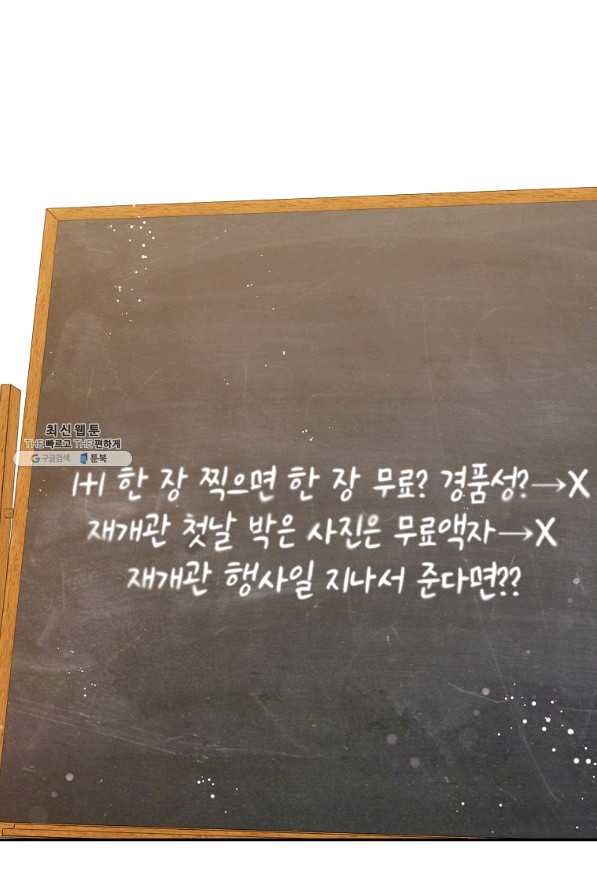 최신웹툰
THE빠르고 THE편하게
구글검색 툰북
1+1 한 장 찍으면 한 장 무료? 경품성?→X
재개관 첫날 박은 사진은 무료액자→X
재개관 행사일 지나서 준다면??